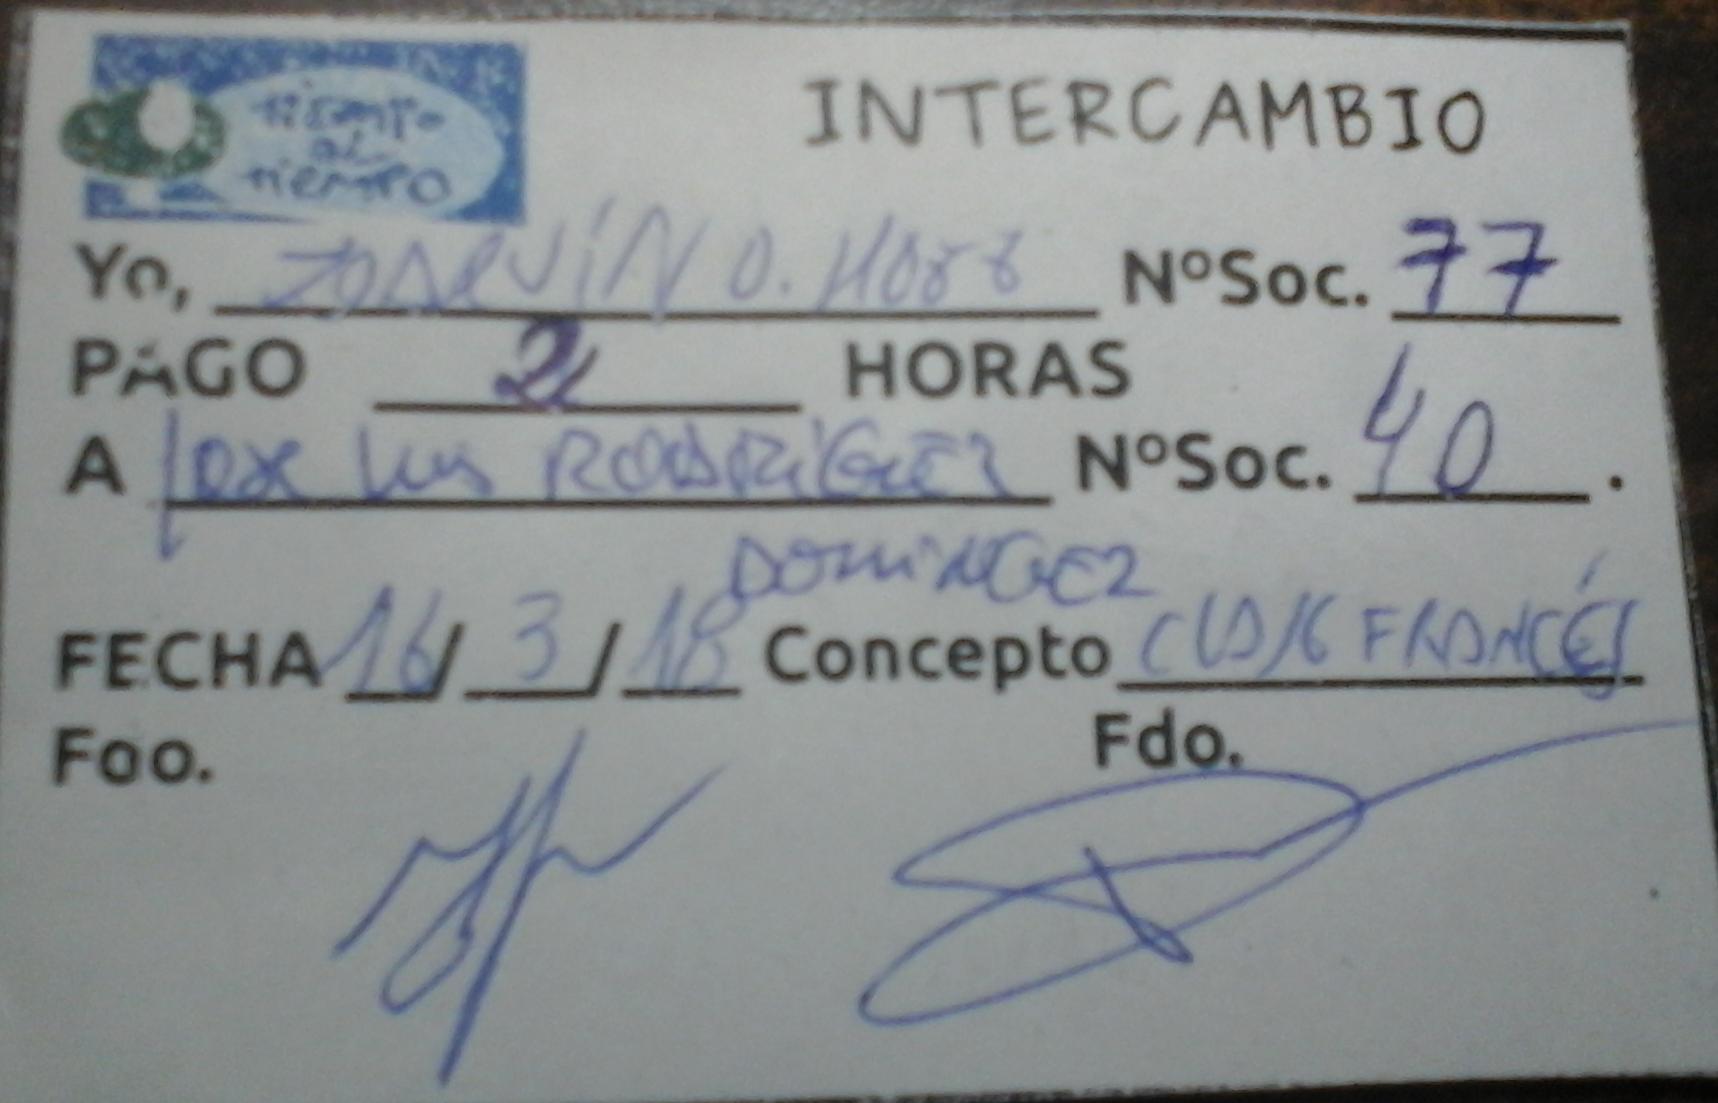 tiempo
al
tiempo
INTERCAMBIO
Yo, JOAQUÍN O. NºSoc. 77
PAGO 2 HORAS
A Jose Luis RODRIGUEZ NºSoc. 40.
DOMINGEZ
FECHA 16/3/18 Concepto CLASE FRANCÉS
Fdo. Fdo.